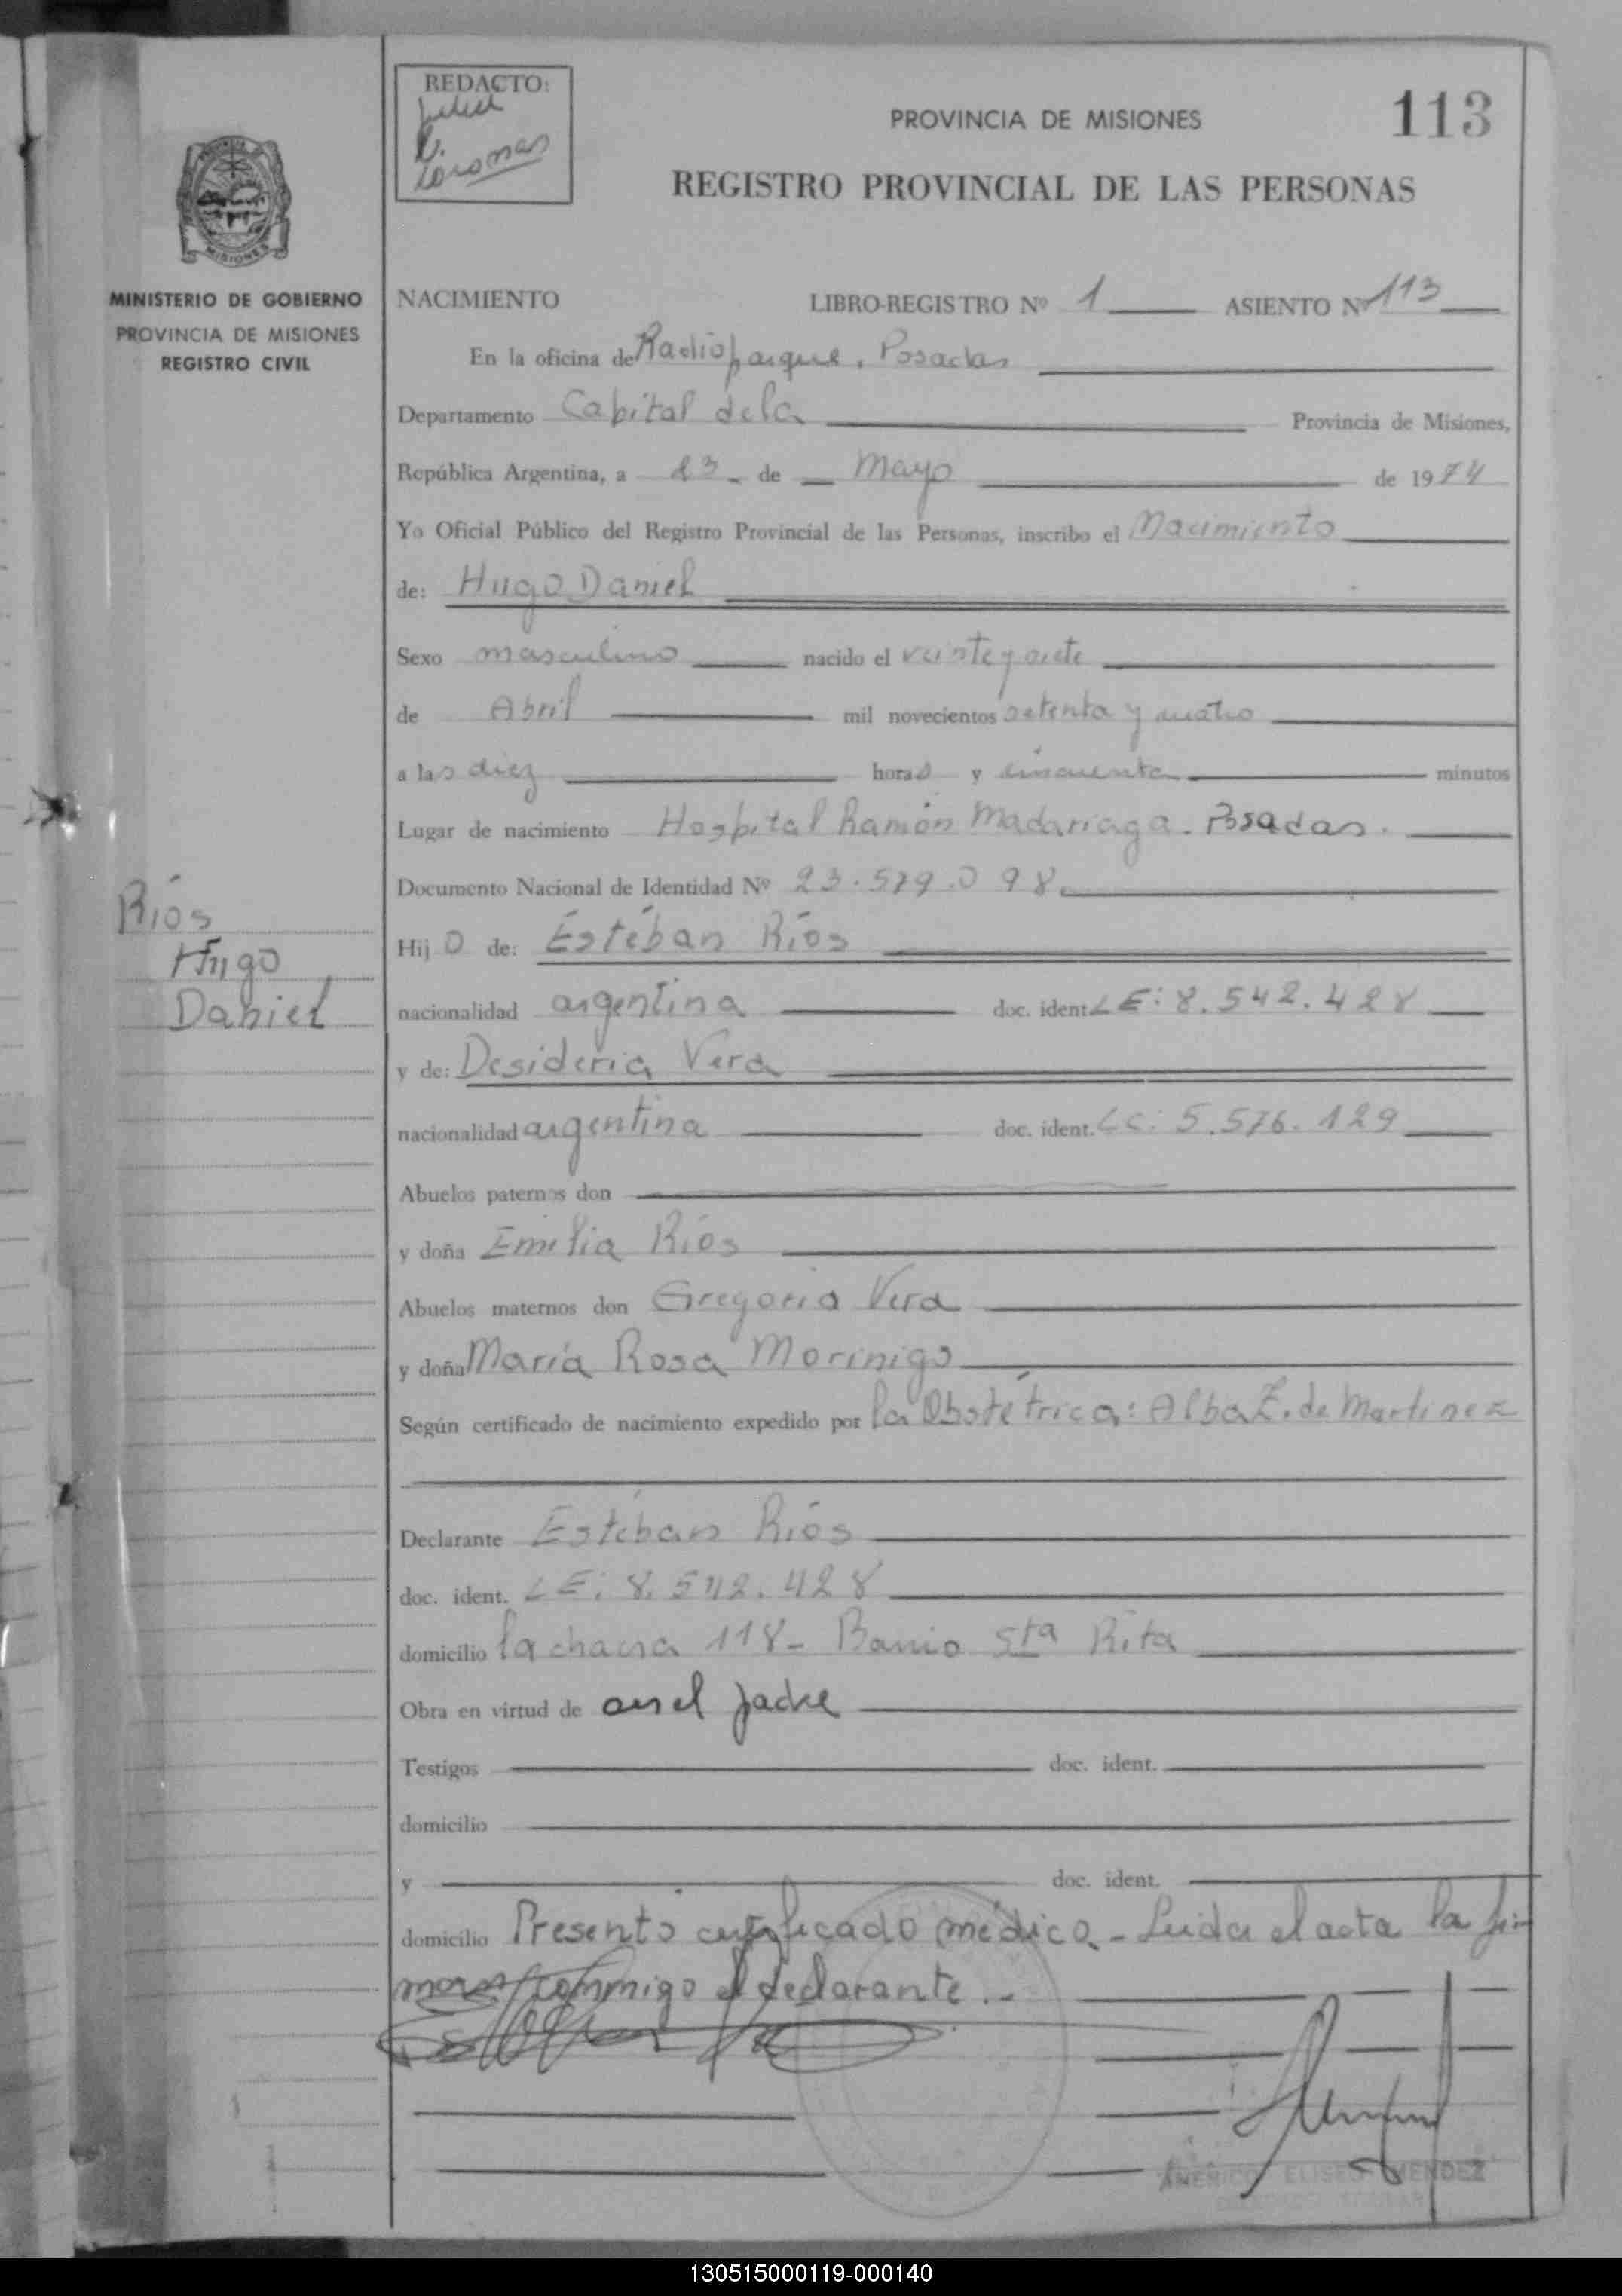 REDACTO:
PROVINCIA DE MISIONES
113
REGISTRO PROVINCIAL DE LAS PERSONAS
MISIONES
MINISTERIO DE GOBIERNO
PROVINCIA DE MISIONES
REGISTRO CIVIL
NACIMIENTO LIBRO-REGISTRO Nº 1 ASIENTO Nº 113
En la oficina de Radioparque. Posadas
Departamento Capital de la Provincia de Misiones,
República Argentina, a 23 de Mayo de 1974
Yo Oficial Público del Registro Provincial de las Personas, inscribo el Nacimiento
de: Hugo Daniel
Sexo masculino nacido el veinte y siete
de Abril mil novecientos setenta y cuatro
a las diez horas y cincuenta minutos
Lugar de nacimiento Hospital Ramón Madariaga. Posadas.
Documento Nacional de Identidad Nº 23.579.098
Ríos
Hugo
Daniel
Hijo de: Estéban Ríos
nacionalidad argentina doc. ident. LE: 8.542.428
y de: Desideria Vera
nacionalidad argentina doc. ident. LC: 5.576.129
Abuelos paternos don
y doña Emilia Ríos
Abuelos maternos don Gregorio Vera
y doña María Rosa Morinigo
Según certificado de nacimiento expedido por la Obstétrica: Alba Z. de Martinez
Declarante Estéban Ríos
doc. ident. LE: 8.542.428
domicilio la chacra 118- Barrio Sta Rita
Obra en virtud de ser el padre
Testigos doc. ident.
domicilio
y doc. ident.
domicilio Presentó certificado médico.- Leida el acta la fir
man conmigo el declarante.-
AMERICO ELISEO MENDEZ
130515000119-000140